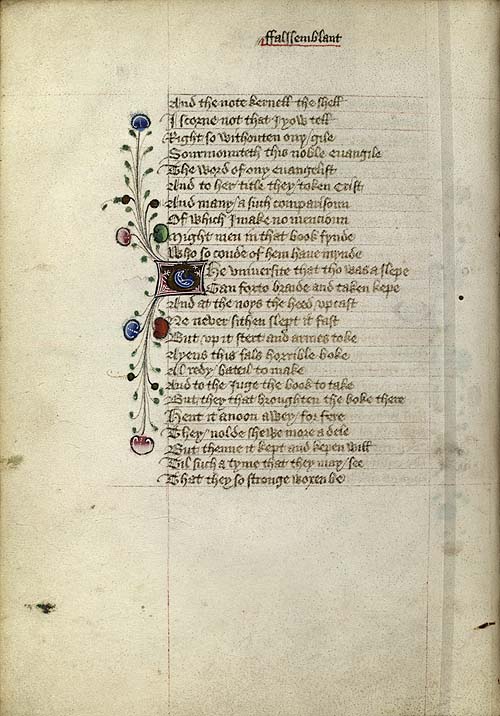 ffalssemblant
And the note kernell the shell
I scorne not that I yow tell
Right so withouten ony gile
Sourmounteth this noble euangile
The word of ony euangelist
And to her title they token Crist
And many a such comparisoun
Of which I make no mencioun
Might men in that book fynde
Who so coude of hem haue mynde
The vniuersite that tho was a slepe
Gan forto braide and taken kepe
And at the noys the heed vpcast
Ne neuer sithen slept it fast
But vp it stert and armes toke
Ayens this fals horrible boke
Al redy bateil to make
And to the Juge the book to take
But they that broughten the boke there
Hent it anoon awey for fere
They nolde shewe more a dele
But thenne it kept and kepen will
Til such a tyme that they may see
That they so stronge woxen be